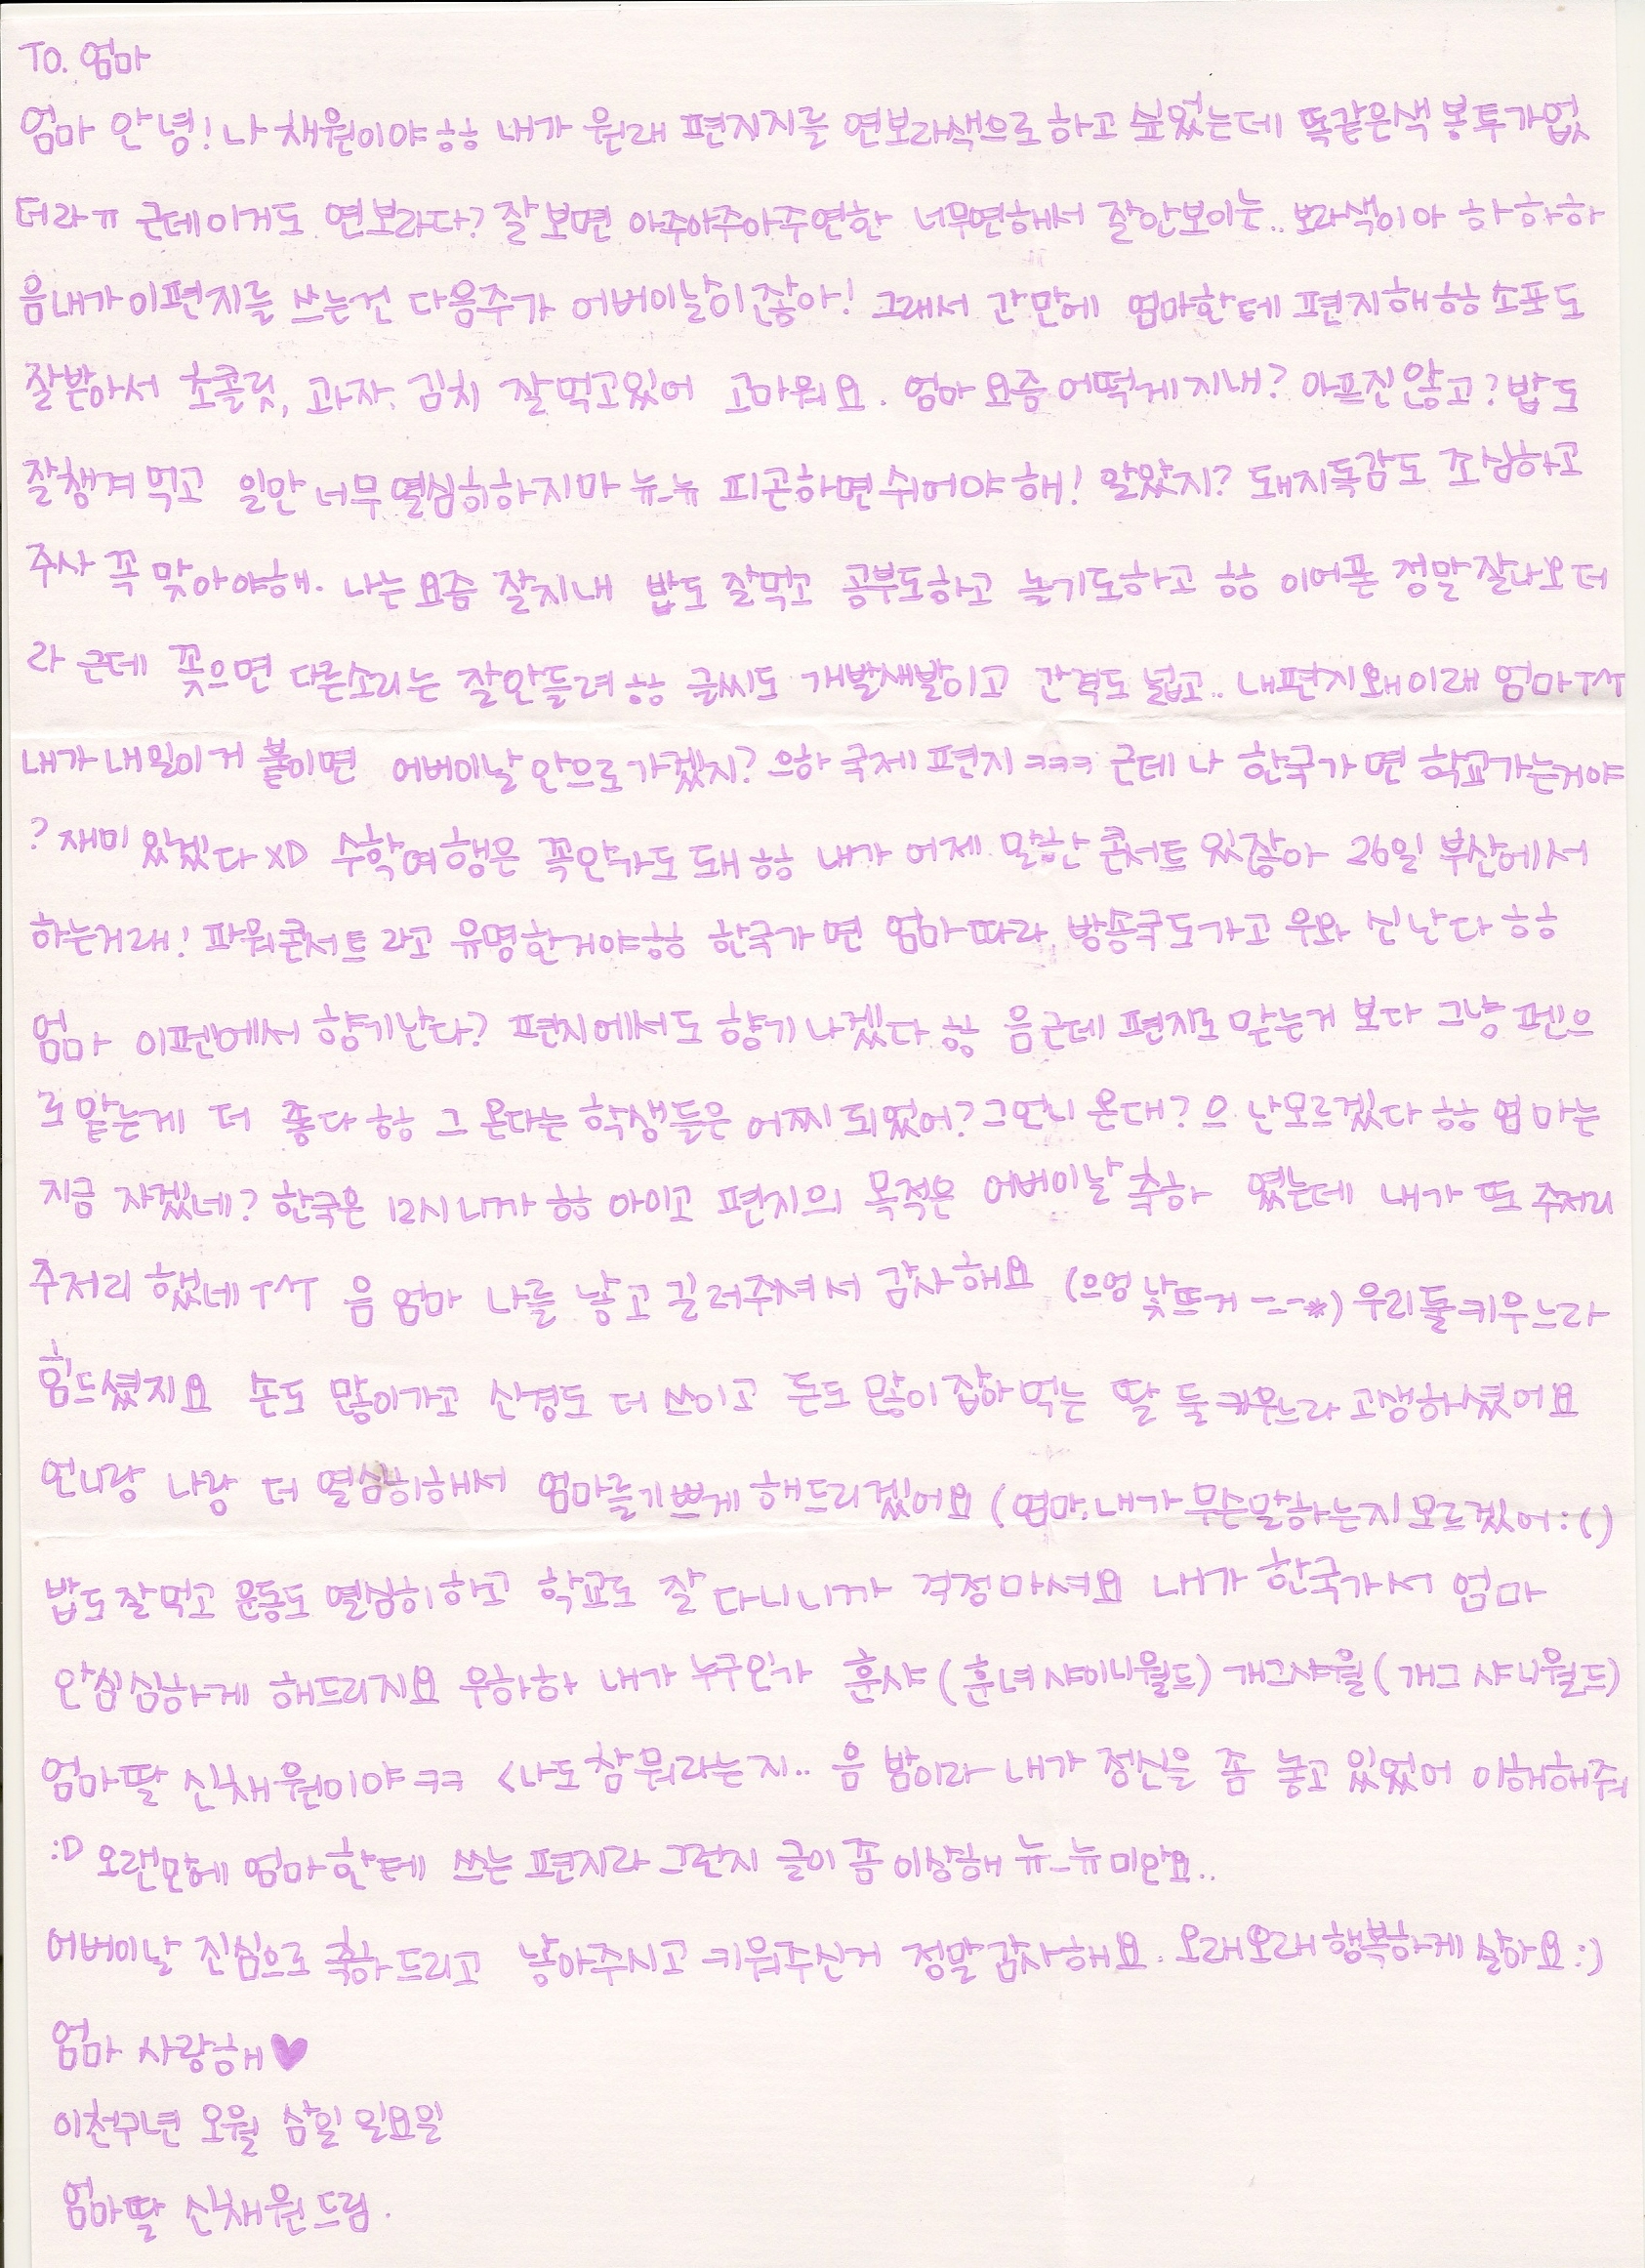 TO. 엄마
엄마 안녕! 나 채원이야 ㅎㅎ 내가 원래 편지지를 연보라색으로 하고 싶었는데 똑같은색 봉투가없
더라 ㅠ 근데이거도 연보라다? 잘보면 아주아주아주연한 너무연해서 잘안보이는.. 보라색이야 하하하
음내가 이편지를 쓰는건 다음주가 어버이날이잖아! 그래서 간만에 엄마한테 편지해 ㅎㅎ 소포도
잘받아서 초콜릿, 과자, 김치 잘먹고있어 고마워요. 엄마 요즘 어떻게지내? 아프진않고? 밥도
잘챙겨먹고 일만 너무 열심히하지마 ㅠ_ㅠ 피곤하면쉬어야해! 알았지? 돼지독감도 조심하고
주사 꼭 맞아야해. 나는 요즘 잘지내 밥도 잘먹고 공부도하고 놀기도하고 ㅎㅎ 이어폰 정말잘나오더
라 근데 꽂으면 다른소리는 잘안들려 ㅎㅎ 글씨도 개발새발이고 간격도 넓고.. 내편지왜이래 엄마 T^T
내가 내일이거 붙이면 어버이날 안으로가겠지? 으하 국제 편지 ㅋㅋㅋ 근데 나 한국가면 학교가는거야
? 재미있겠다 XD 수학여행은 꼭안가도 돼 ㅎㅎ 내가 어제 말한 콘서트 있잖아 26일 부산에서
하는거래! 파워콘서트 라고 유명한거야 ㅎㅎ 한국가면 엄마따라 방송국도가고 우와 신난다 ㅎㅎ
엄마 이펜에서 향기난다? 편지에서도 향기나겠다 ㅎㅎ 음근데 편지로 맡는거 보다 그냥 펜으
로맡는게 더 좋다 ㅎㅎ 그 온다는 학생들은 어찌되었어? 그언니 온대? 으 난모르겠다 ㅎㅎ 엄마는
지금 자겠네? 한국은 12시니까 ㅎㅎ 아이고 편지의 목적은 어버이날 축하 였는데 내가 또 주저리
주저리 했네 T^T 음 엄마 나를 낳고 길러주셔서 감사해요 (으엉 낯뜨거 =_=*) 우리둘키우느라
힘드셨지요 손도 많이가고 신경도 더 쓰이고 돈도 많이잡아먹는 딸 둘키우느라 고생하셨어요
언니랑 나랑 더 열심히해서 엄마를기쁘게 해드리겠어요 (엄마, 내가 무슨말하는지 모르겠어 :()
밥도잘먹고 운동도 열심히하고 학교도 잘 다니니까 걱정마셔요 내가 한국가서 엄마
안심하게 해드리지요 우하하 내가 누구인가 훈샤 (훈녀샤이니월드) 개그샤월 (개그 샤니월드)
엄마딸 신채원이야 ㅋㅋ <나도 참 뭐라는지.. 음 밤이라 내가 정신을 좀 놓고 있었어 이해해줘
:D 오랜만에 엄마한테 쓰는 편지라 그런지 글이 좀 이상해 ㅠ_ㅠ 미안요..
어버이날 진심으로 축하드리고 낳아주시고 키워주신거 정말감사해요. 오래오래행복하게 살아요 :)
엄마 사랑해♥
이천구년 오월 삼일 일요일
엄마딸 신채원드림.